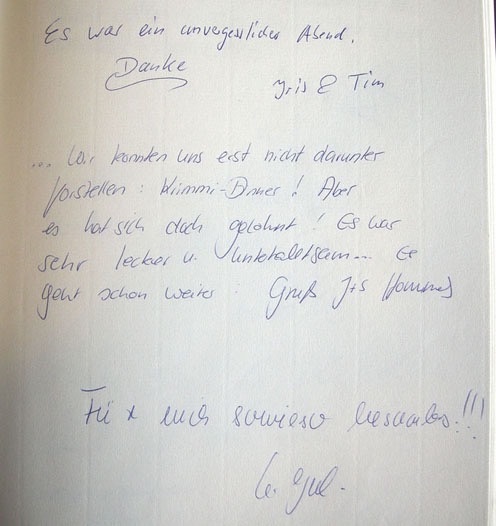 Es war ein unvergesslicher Abend.
Danke
Iris & Tim
... Wir konnten uns erst nicht darunter
vorstellen: Krimmi-Dinner! Aber
es hat sich doch gelohnt! Es war
sehr lecker u. unterhaltsam... Es
geht schon weiter. Gruß J+S
Für mich sowieso !!!